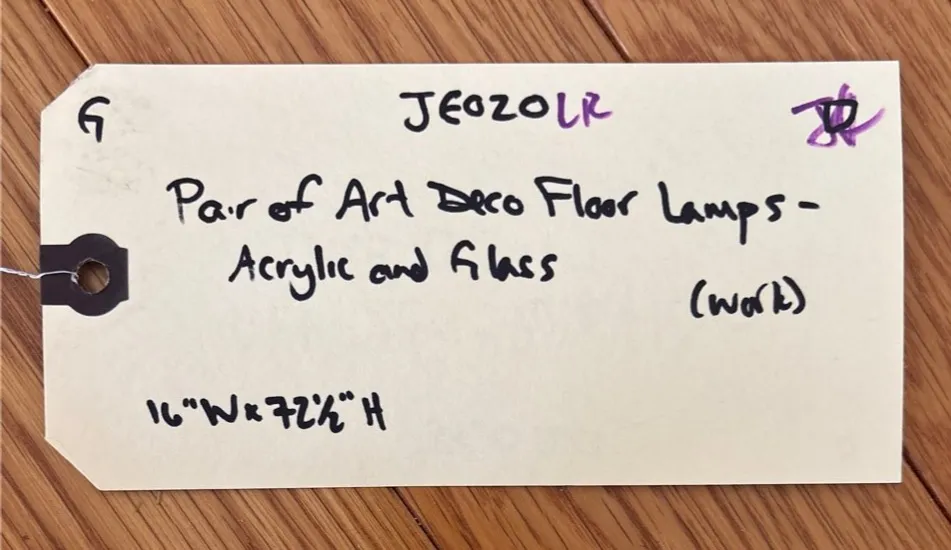 G JE020LR
Pair of Art Deco Floor Lamps-
Acrylic and Glass
(work)
16"W x 72½" H